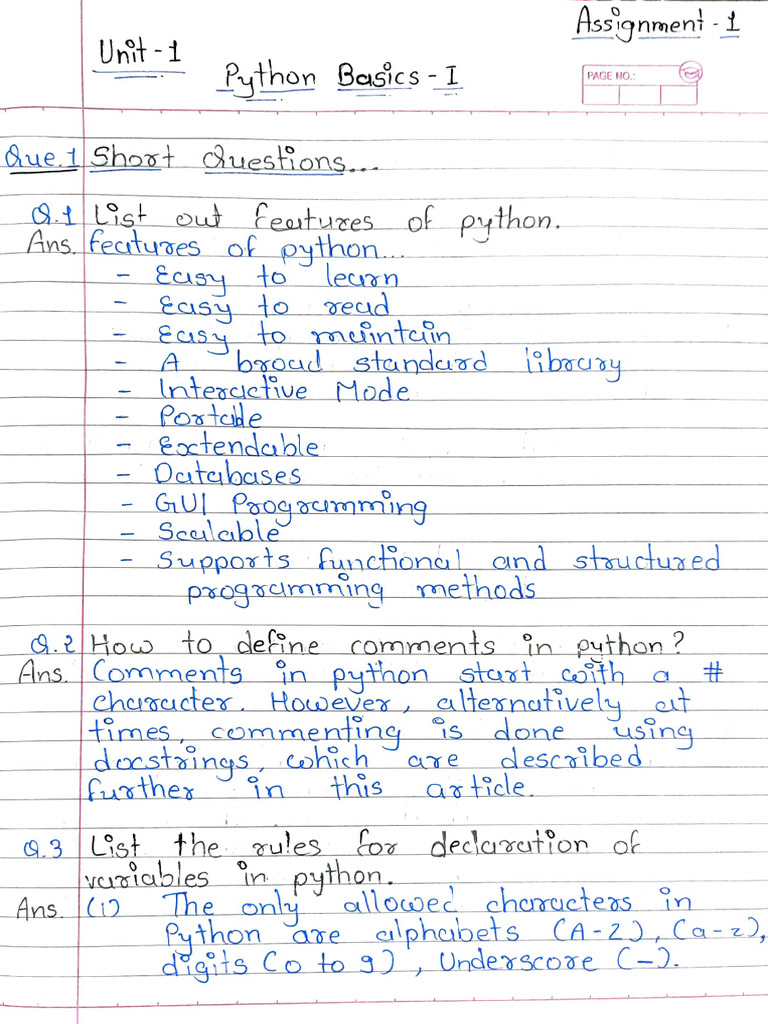 Assignment - 1
Unit - 1
Python Basics - I
PAGE NO.:
Que.1 Short Questions...
Q.1 List out features of python.
Ans. features of python...
- Easy to learn
- Easy to read
- Easy to maintain
- A broad standard library
- Interactive Mode
- Portable
- Extendable
- Databases
- GUI Programming
- Scalable
- Supports functional and structured
programming methods
Q.2 How to define comments in python?
Ans. Comments in python start with a #
character. However, alternatively at
times, commenting is done using
docstrings, which are described
further in this article.
Q.3 List the rules for declaration of
variables in python.
Ans. (i) The only allowed characters in
Python are alphabets (A-Z), (a-z),
digits (0 to 9), Underscore (-).